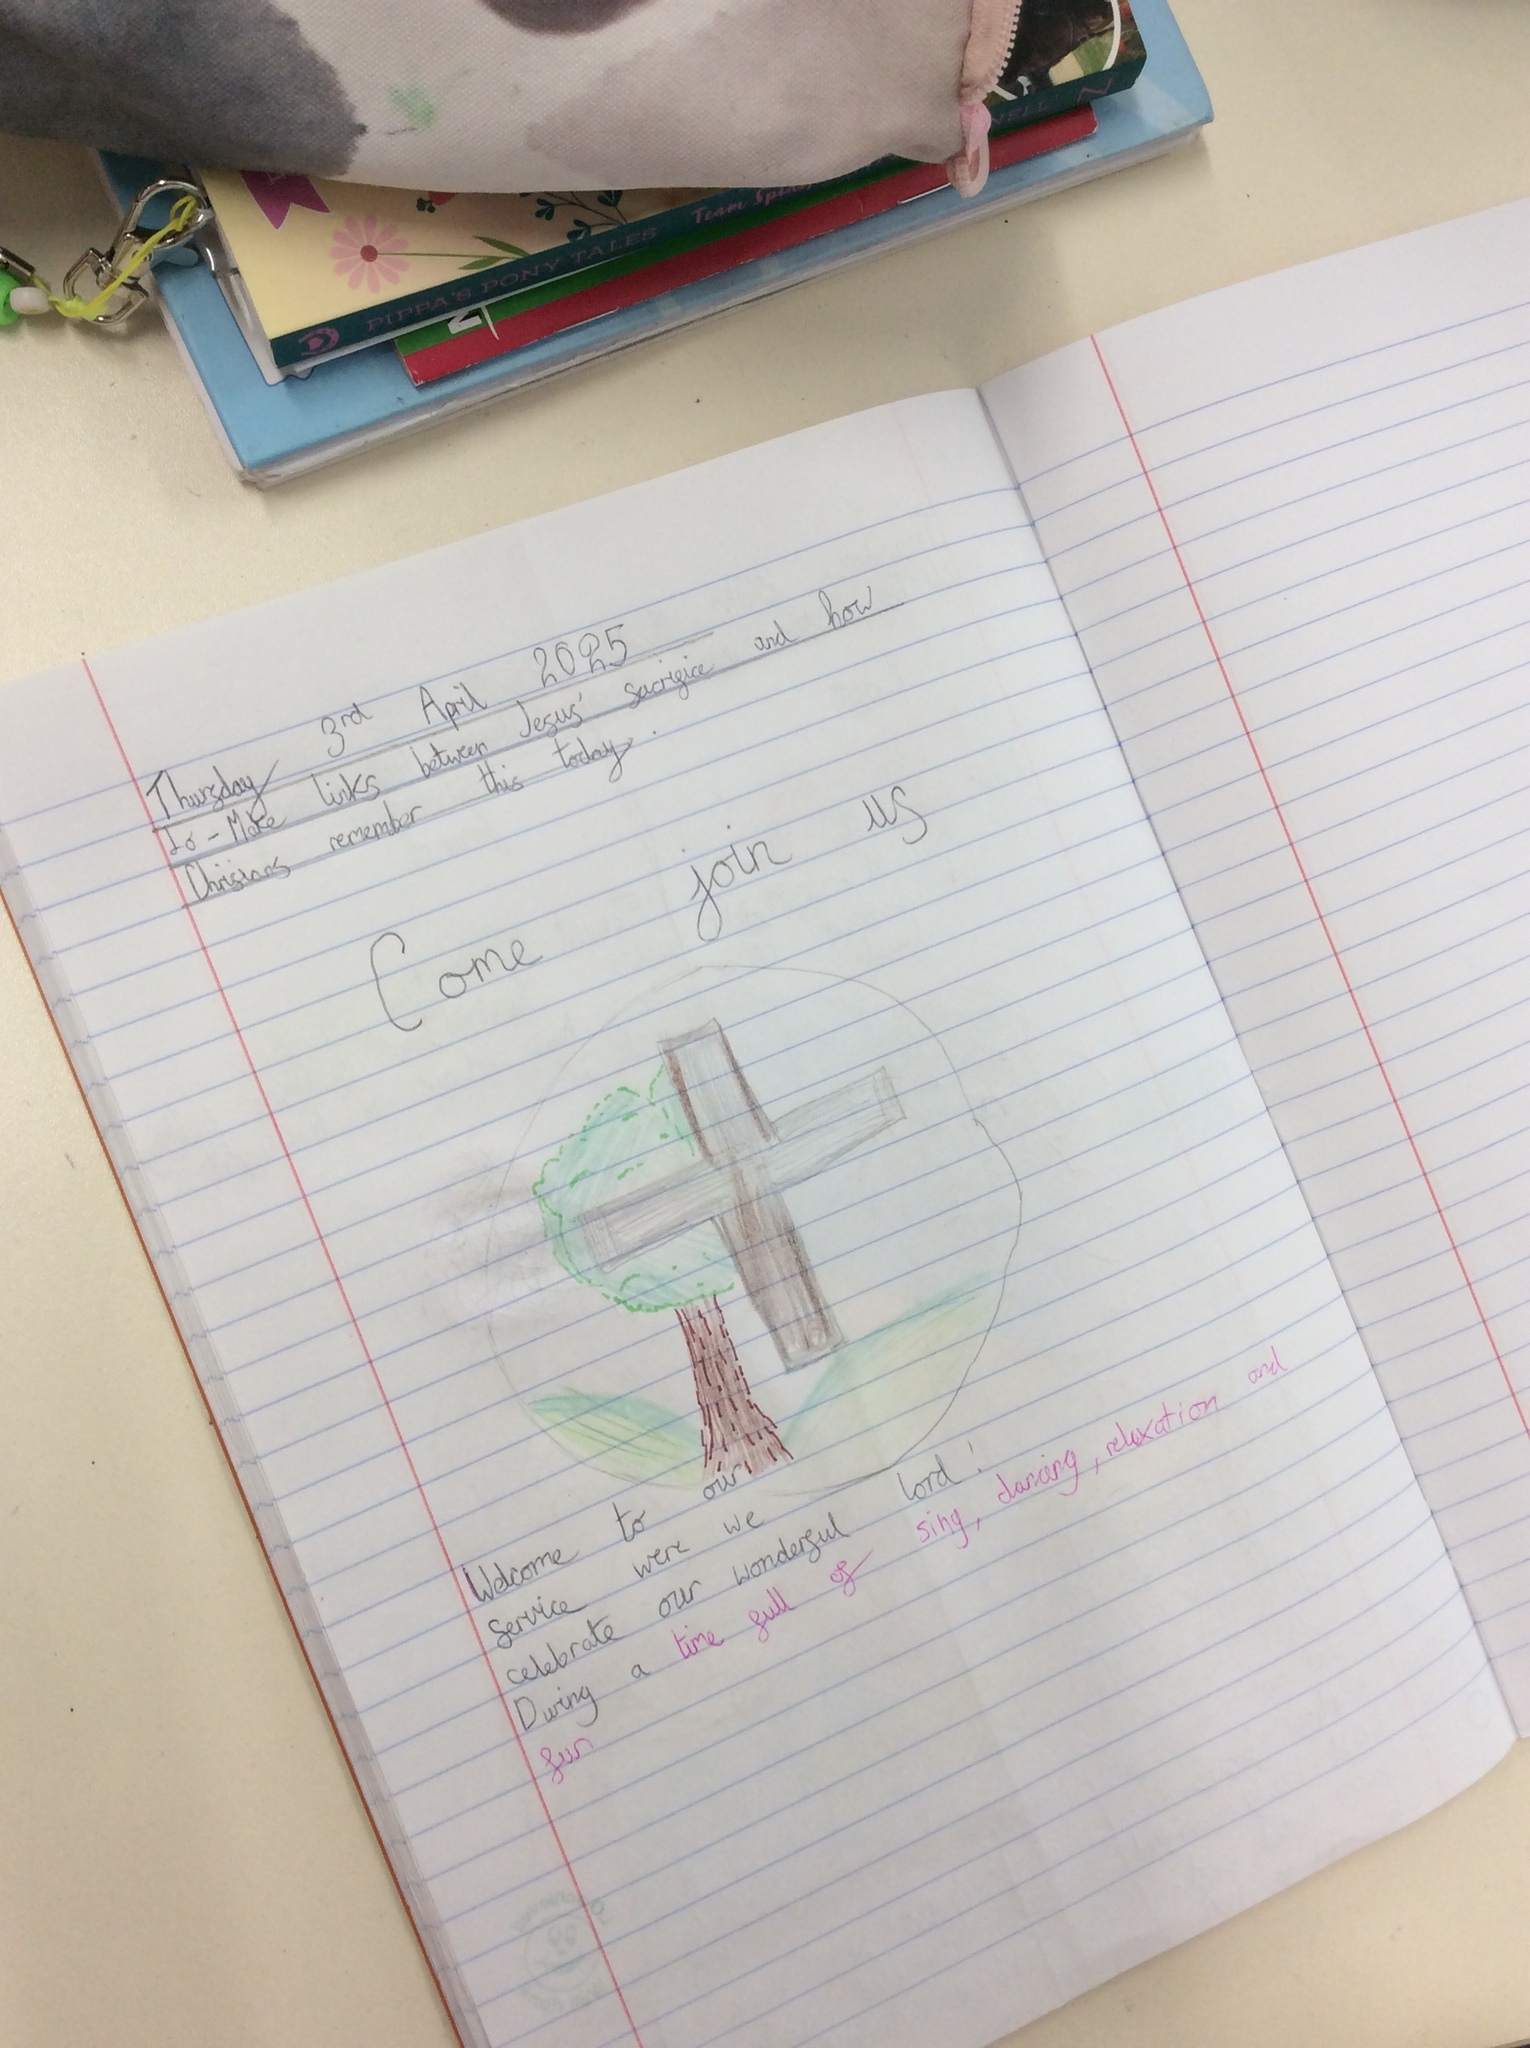 PIPPA'S PONY TALES
Team Splash
NELL
N
Thursday 3rd April 2025
Lo - Make links between Jesus' sacrifice and how
Chrisians remember this today.
Come join us
Welcome to our
service were we
celebrate our wonderful lord!
During a time full of sing, dancing, relaxation and
fun